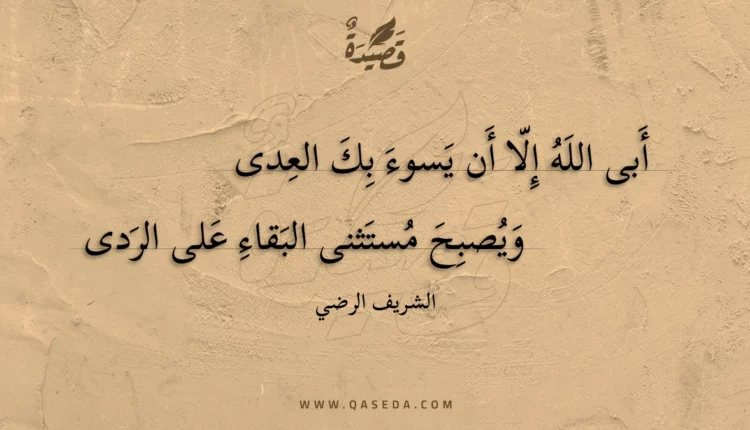 قَصِيدَةٌ
أَبى اللَهُ إِلّا أَن يَسوءَ بِكَ العِدى
وَيُصبِحَ مُستَثنى البَقاءِ عَلى الرَدى
الشريف الرضي
WWW.QASEDA.COM